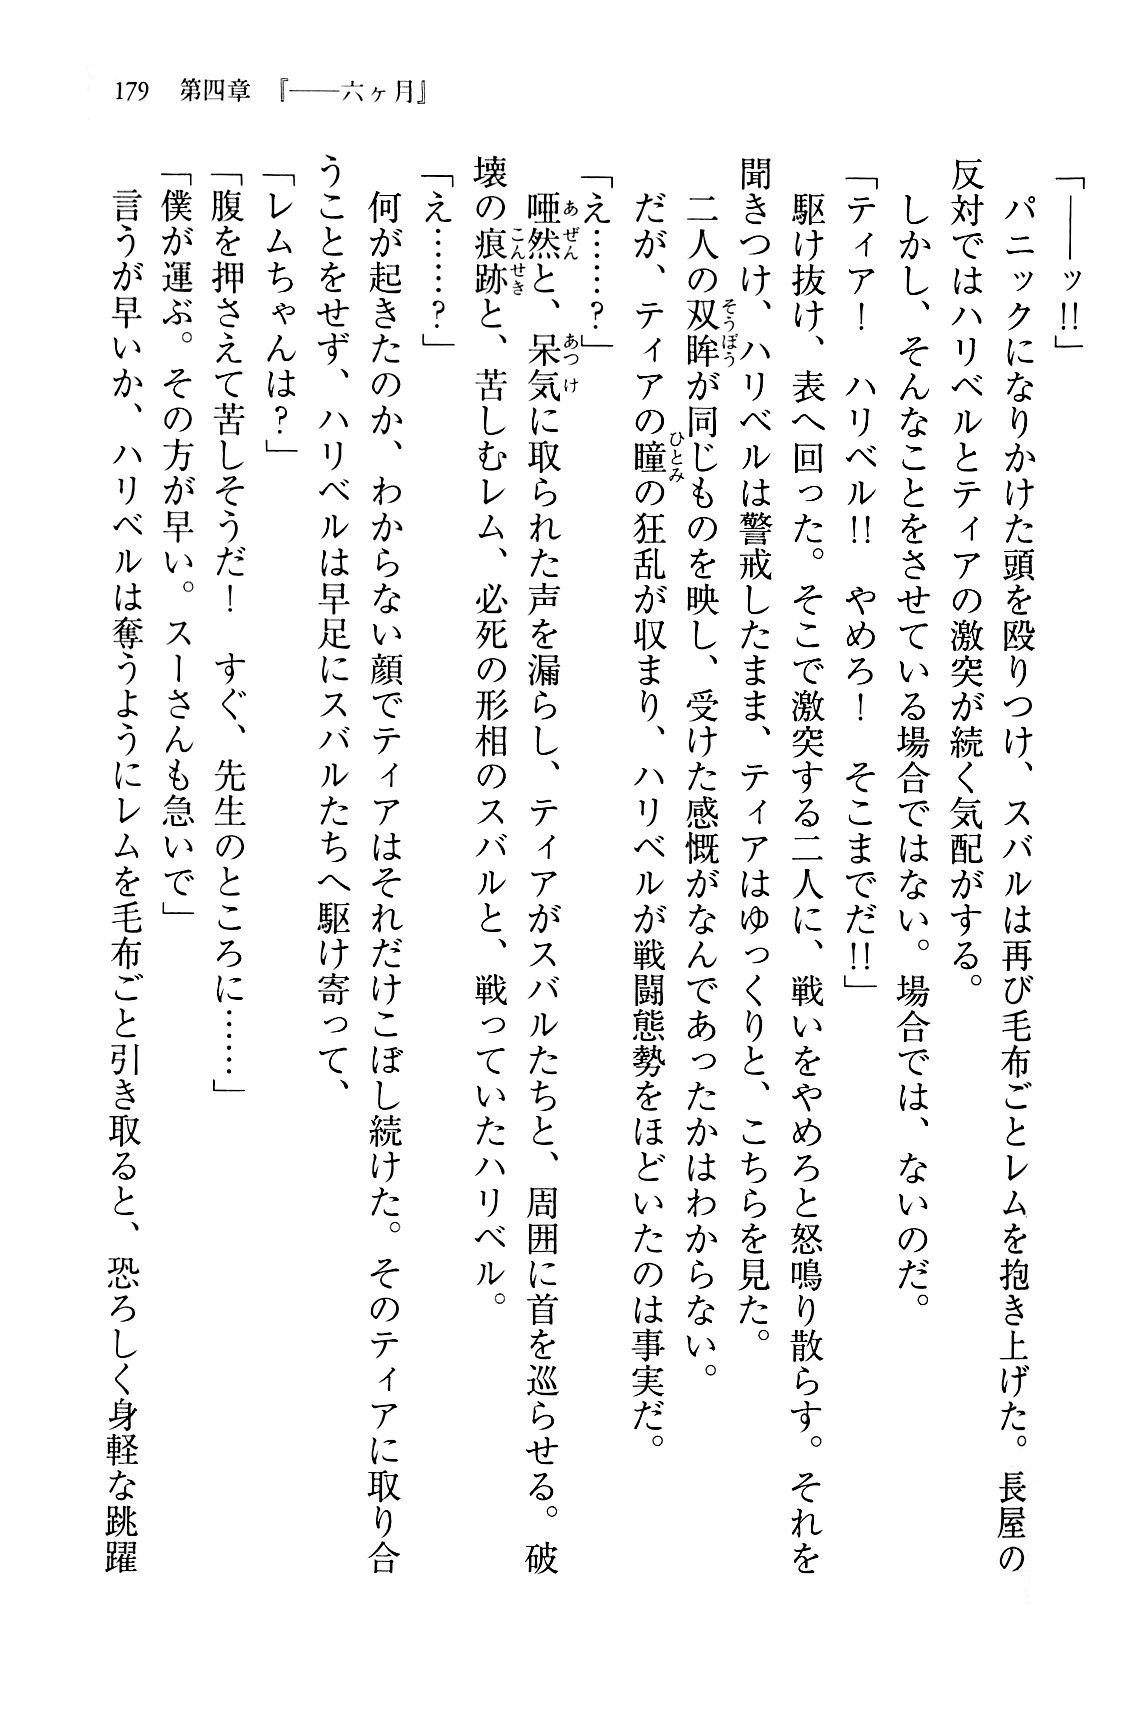 179　第四章　『――六ヶ月』
「――ッ!!」
　パニックになりかけた頭を殴りつけ、スバルは再び毛布ごとレムを抱き上げた。長屋の
反対ではハリベルとティアの激突が続く気配がする。
　しかし、そんなことをさせている場合ではない。場合では、ないのだ。
「ティア！　ハリベル!!　やめろ！　そこまでだ!!」
　駆け抜け、表へ回った。そこで激突する二人に、戦いをやめろと怒鳴り散らす。それを
聞きつけ、ハリベルは警戒したまま、ティアはゆっくりと、こちらを見た。
　二人の双眸が同じものを映し、受けた感慨がなんであったかはわからない。
　だが、ティアの瞳の狂乱が収まり、ハリベルが戦闘態勢をほどいたのは事実だ。
「え……？」
　唖然と、呆気に取られた声を漏らし、ティアがスバルたちと、周囲に首を巡らせる。破
壊の痕跡と、苦しむレム、必死の形相のスバルと、戦っていたハリベル。
「え……？」
　何が起きたのか、わからない顔でティアはそれだけこぼし続けた。そのティアに取り合
うことをせず、ハリベルは早足にスバルたちへ駆け寄って、
「レムちゃんは？」
「腹を押さえて苦しそうだ！　すぐ、先生のところに……」
「僕が運ぶ。その方が早い。スーさんも急いで」
　言うが早いか、ハリベルは奪うようにレムを毛布ごと引き取ると、恐ろしく身軽な跳躍